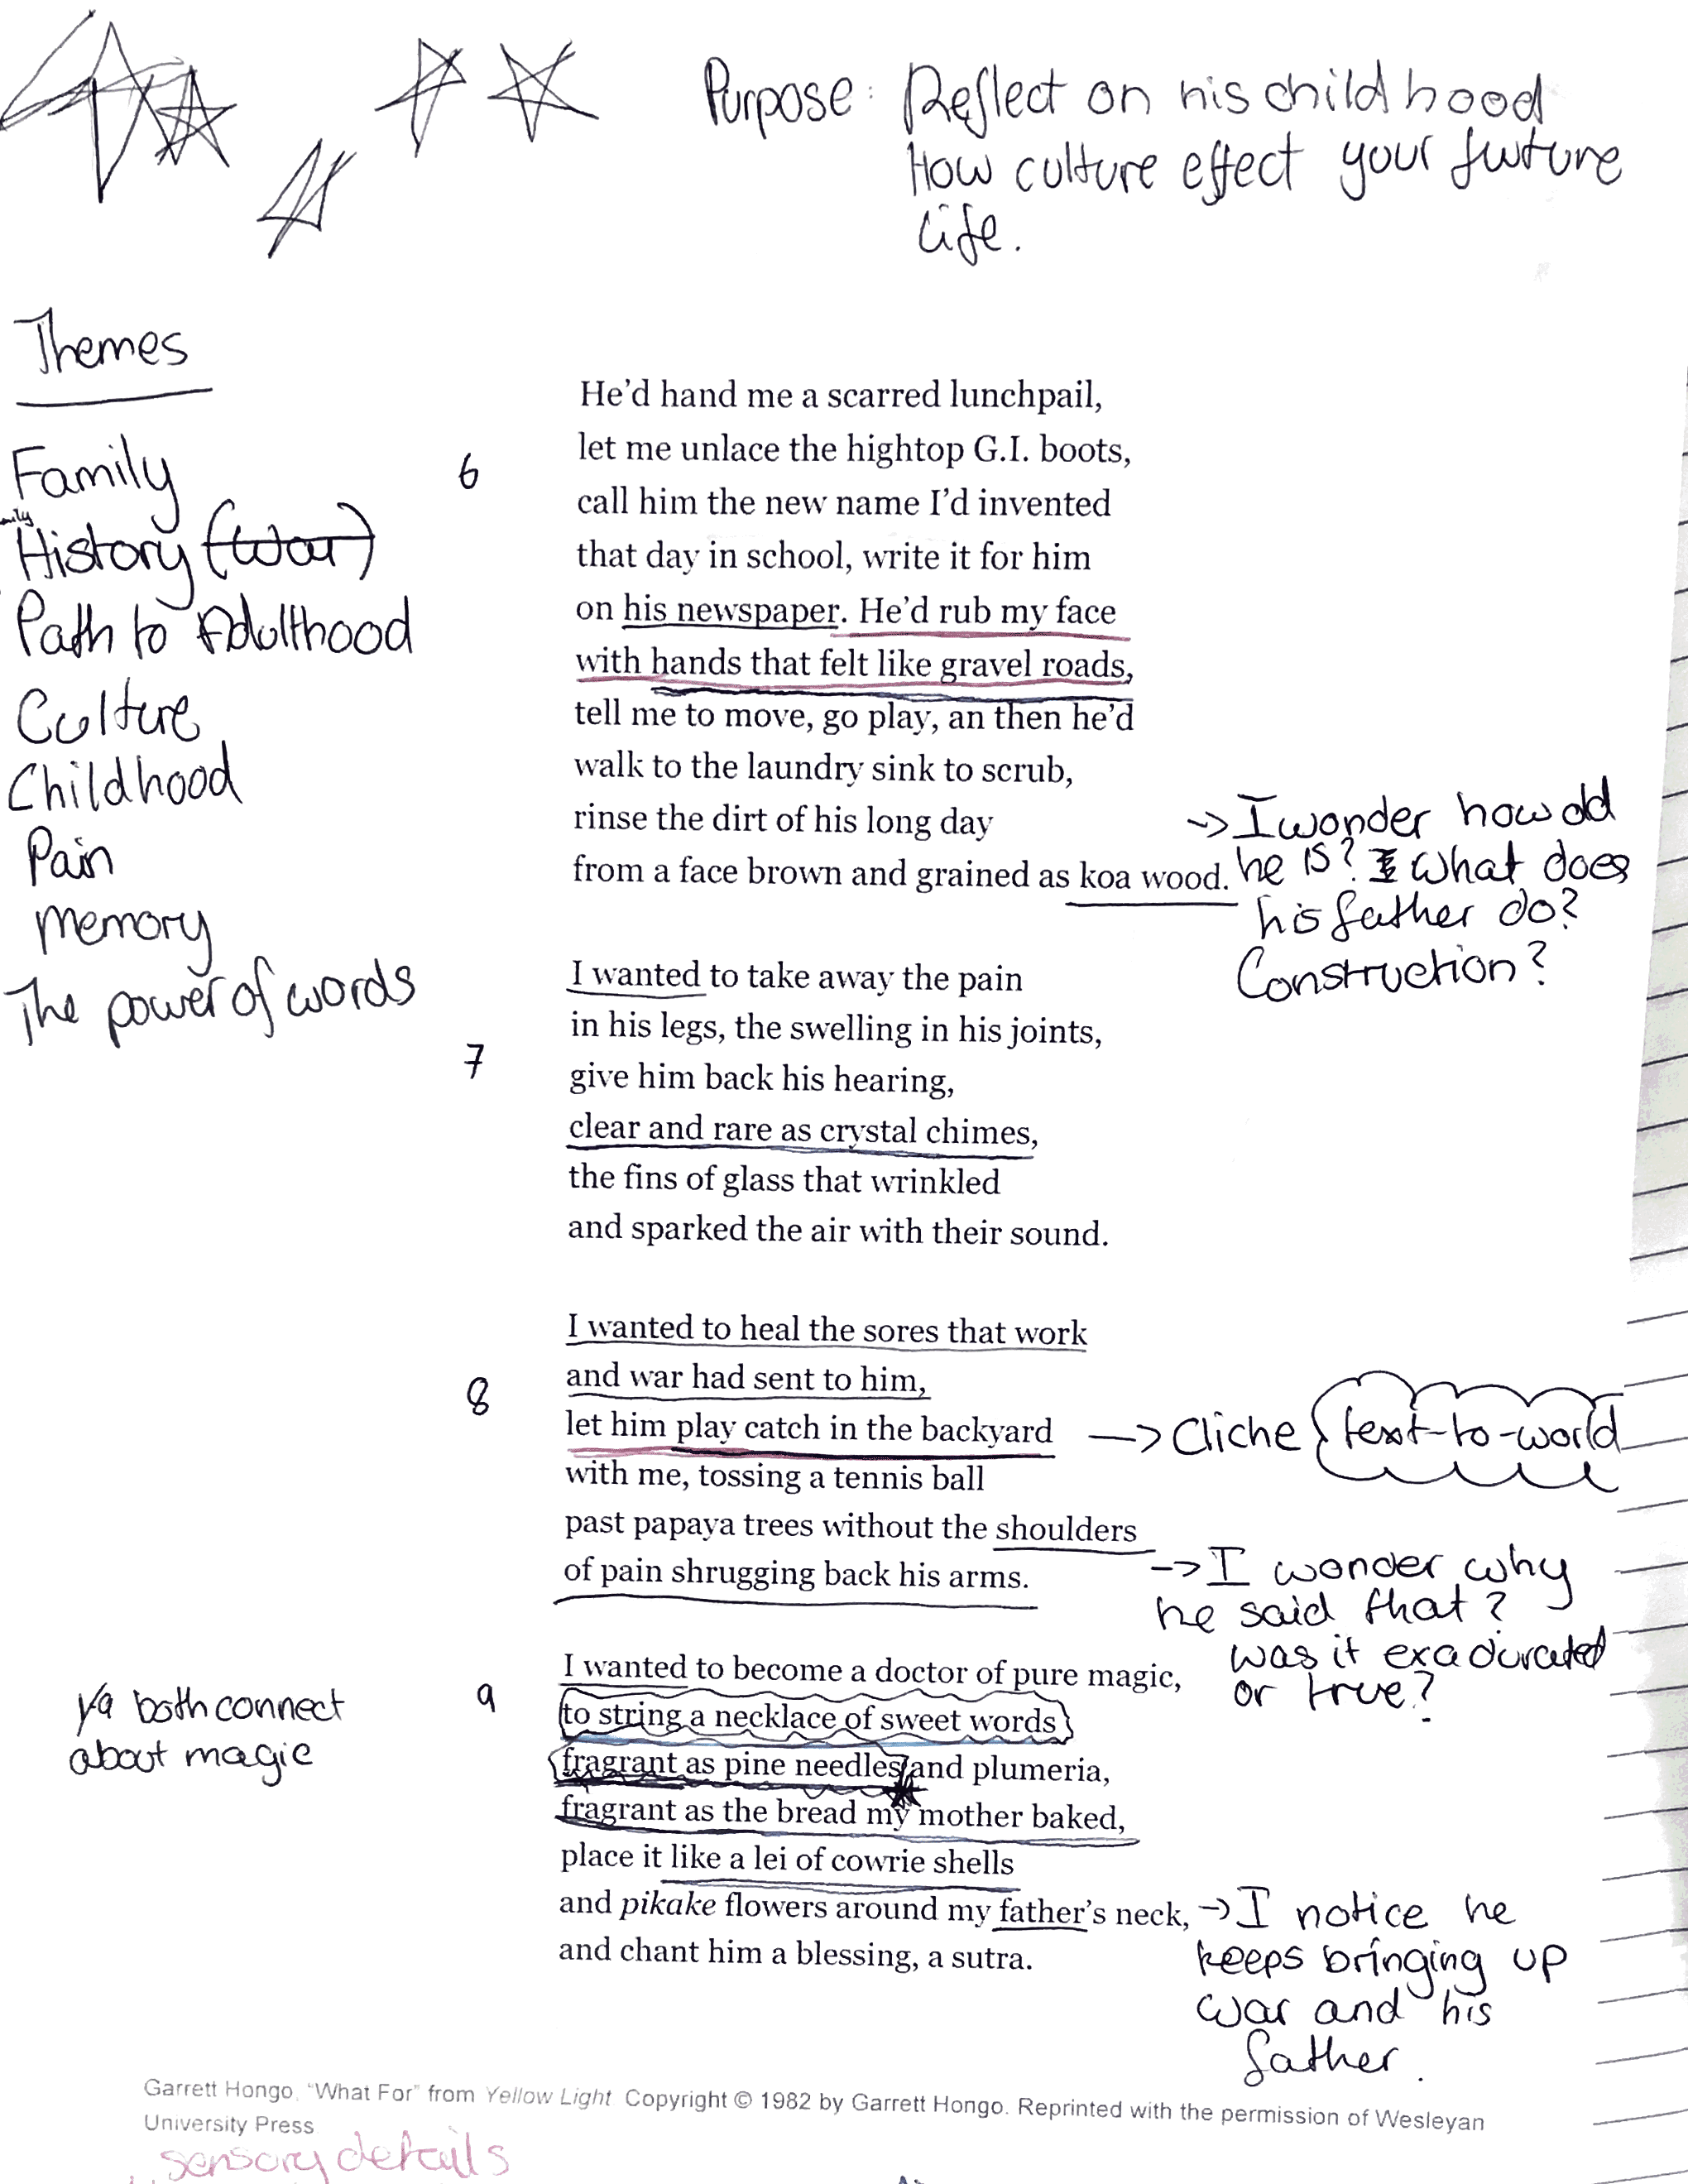 Purpose: Reflect on his childhood
How culture effect your fuuture
life.
Themes
Family
History (war)
Path to Adulthood
Culture
Childhood
Pain
Memory
The power of words
6
He'd hand me a scarred lunchpail,
let me unlace the hightop G.I. boots,
call him the new name I'd invented
that day in school, write it for him
on his newspaper. He'd rub my face
with hands that felt like gravel roads,
tell me to move, go play, an then he'd
walk to the laundry sink to scrub,
rinse the dirt of his long day
from a face brown and grained as koa wood.
-> I wonder how old
he is? What does
his father do?
Construction?
7
I wanted to take away the pain
in his legs, the swelling in his joints,
give him back his hearing,
clear and rare as crystal chimes,
the fins of glass that wrinkled
and sparked the air with their sound.
8
I wanted to heal the sores that work
and war had sent to him,
let him play catch in the backyard
with me, tossing a tennis ball
past papaya trees without the shoulders
of pain shrugging back his arms.
-> Cliche text-to-world
-> I wonder why
he said that?
was it exadurated
or true?
9
I wanted to become a doctor of pure magic,
to string a necklace of sweet words
fragrant as pine needles and plumeria,
fragrant as the bread my mother baked,
place it like a lei of cowrie shells
and pikake flowers around my father's neck,
and chant him a blessing, a sutra.
both connect
about magic
-> I notice he
keeps bringing up
war and his
father.
Garrett Hongo, "What For" from Yellow Light Copyright © 1982 by Garrett Hongo. Reprinted with the permission of Wesleyan
University Press
sensory details